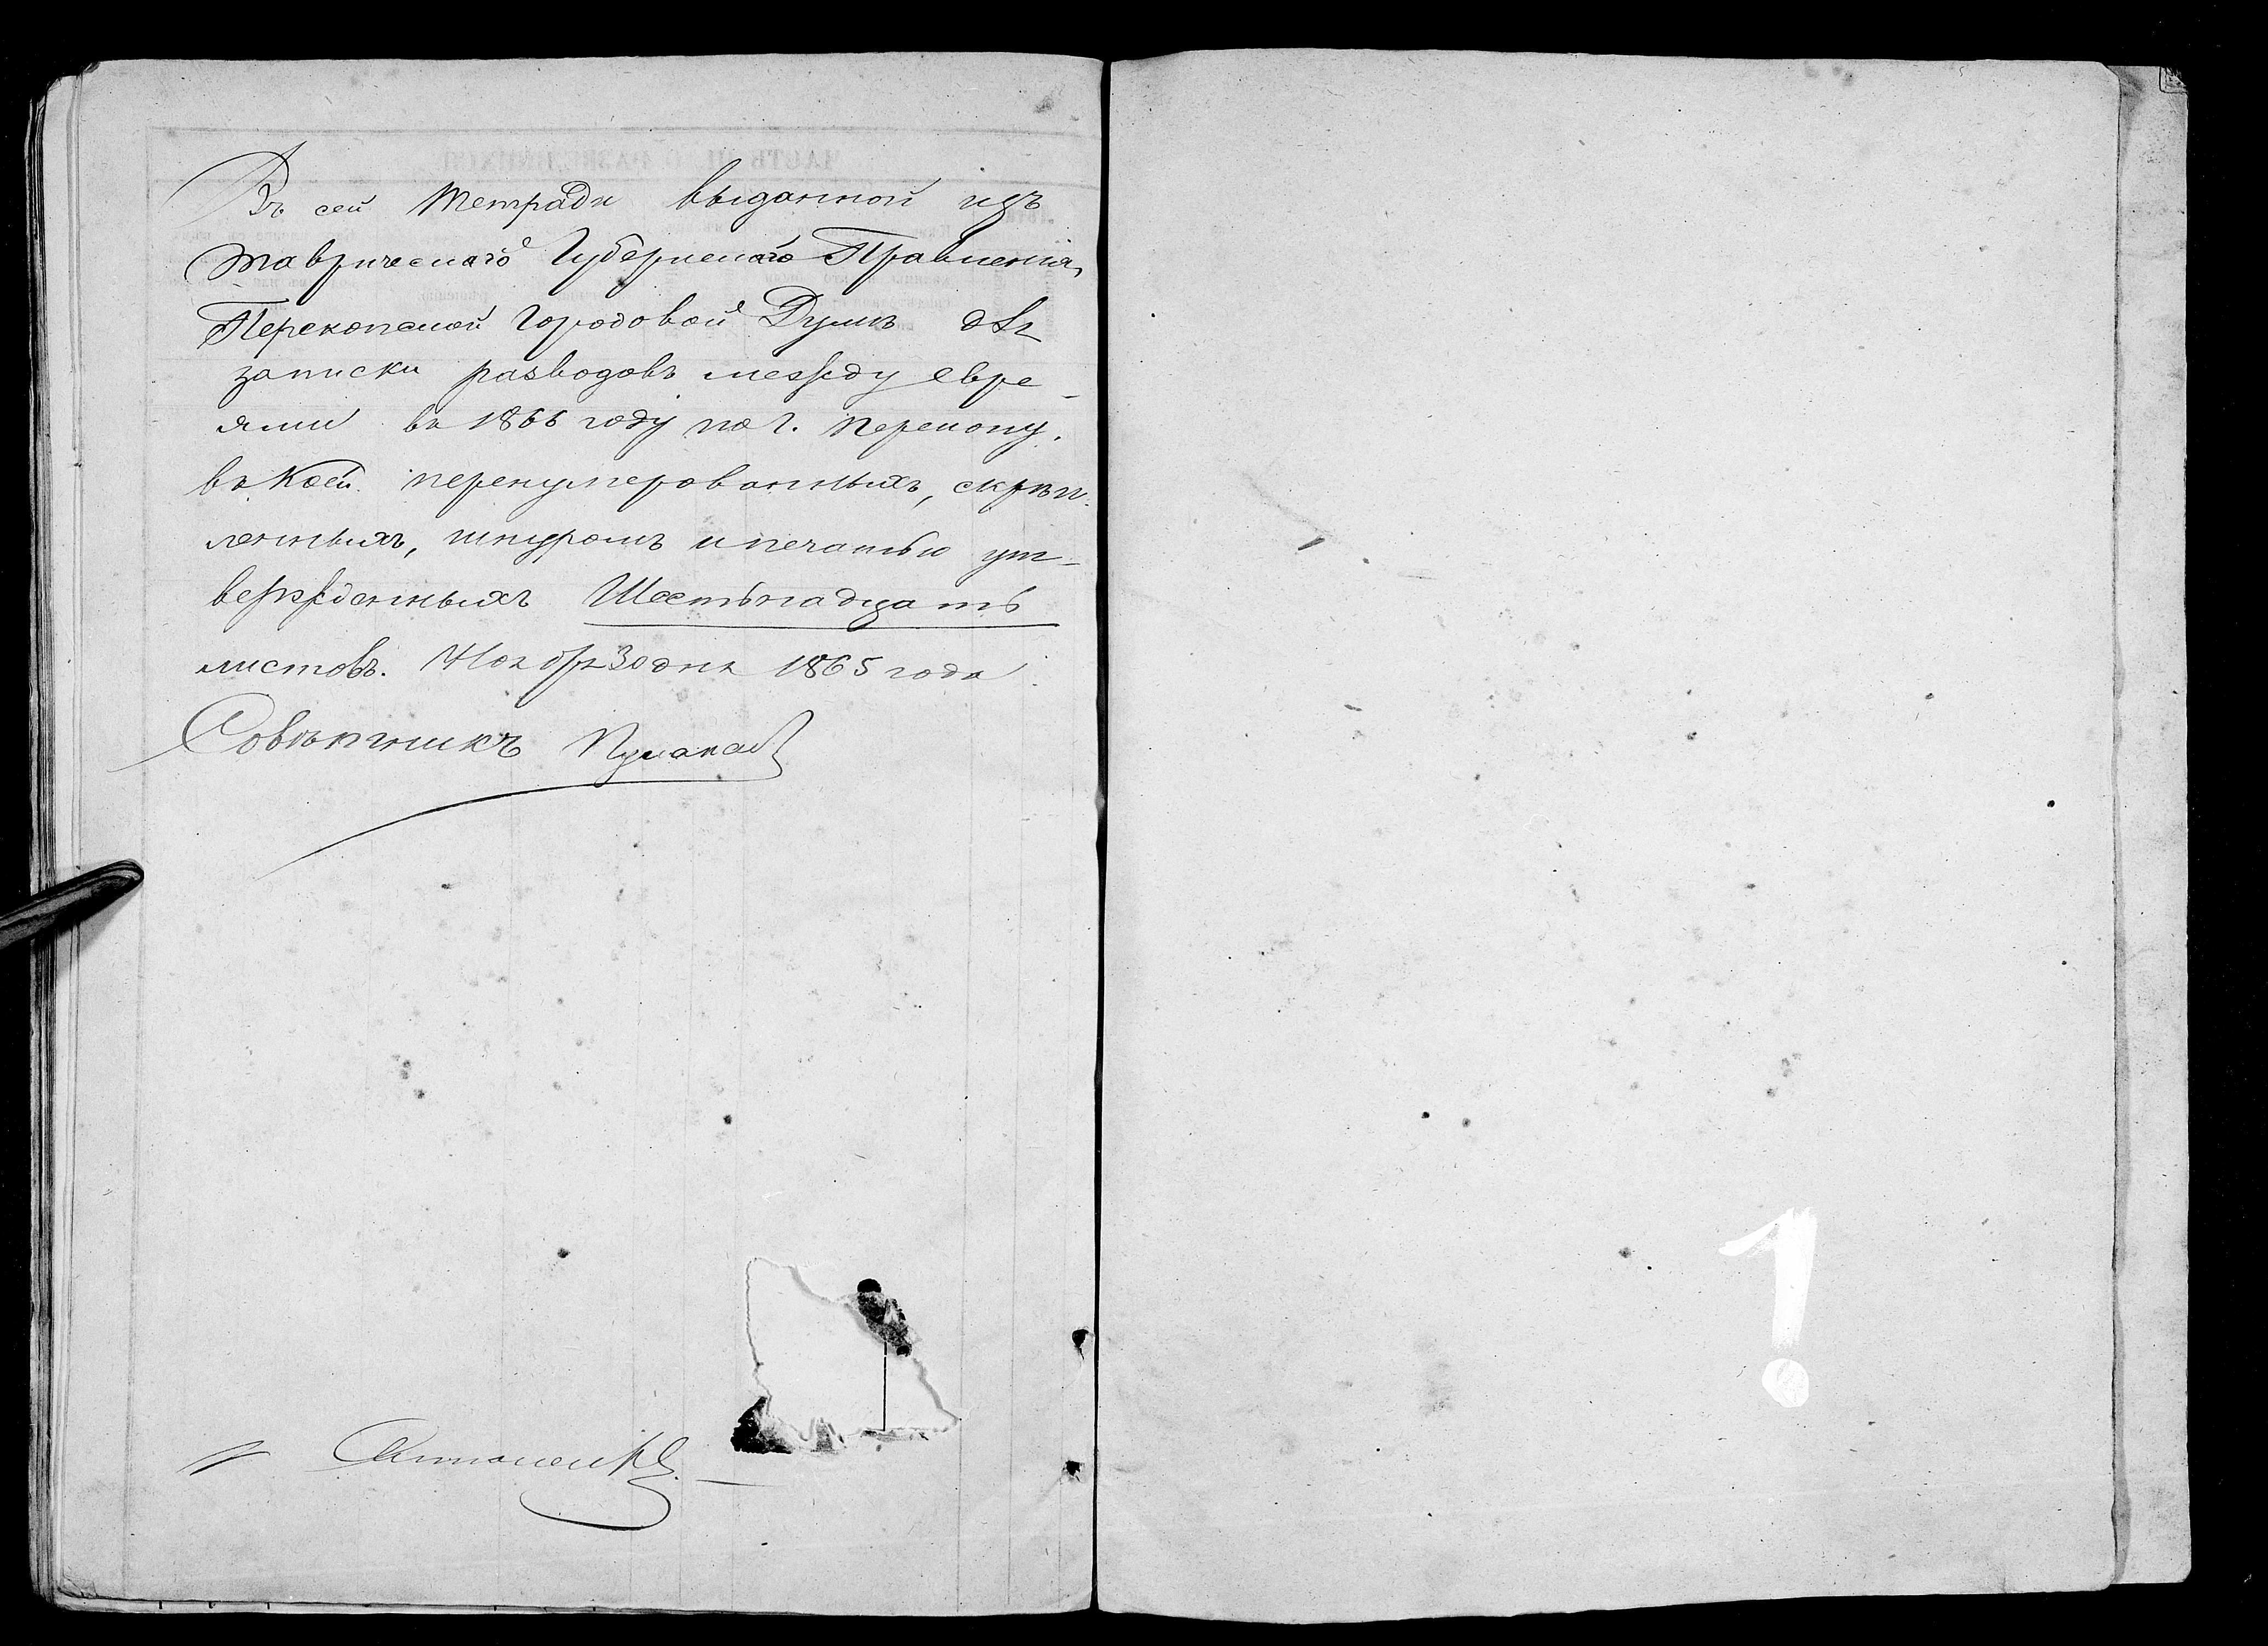 Въ сей тетради выданной изъ
Таврическаго Губернскаго Правленія,
Перекопской Городовой Думѣ для
записки разводовъ между евре-
ями въ 1866 году по г. Перекопу,
въ коей перенумерованныхъ, скрѣп-
ленныхъ, шнуромъ и печатью ут-
вержденныхъ Шестьнадцать
листовъ. Ноября 30 дня 1865 года
Совѣтникъ